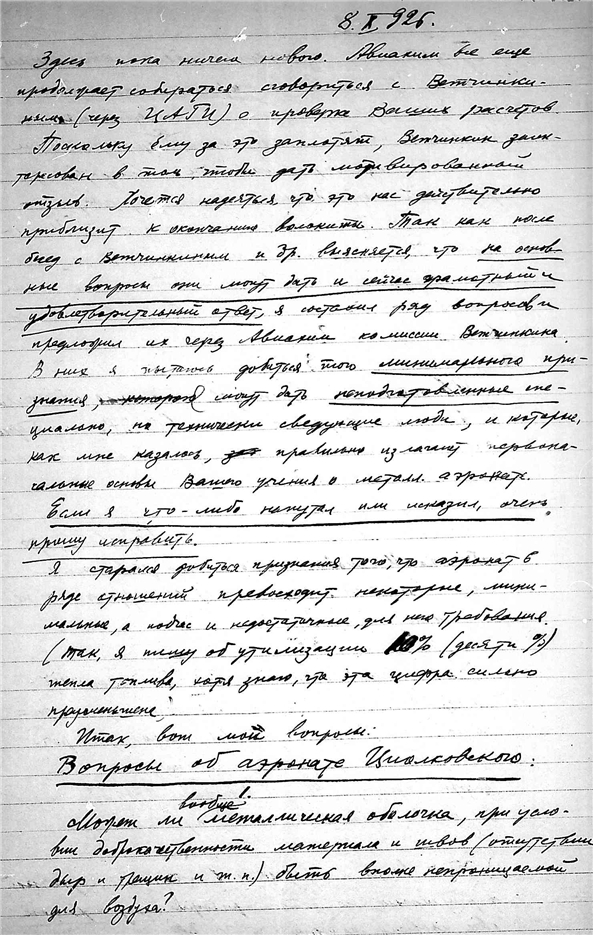 8.X.925.
Здесь пока ничего нового. Авиахим все еще
продолжает собираться сговориться с Ветчинки-
ным (через ЦАГИ) о проверке Ваших расчетов
Поскольку ему за это заплотят, Ветчинкин заин-
тересован в том, чтобы дать мотивированный
отзыв. Хочется надеяться, что это нас действительно
приблизит к окончанию волокиты. Так как после
бесед с Ветчинкиным и др. выясняется, что на основ-
ные вопросы они могут дать и сейчас грамотный и
удовлетворительный ответ, я составил ряд вопросов и
предложил их через Авиахим комиссии Ветчинкина
В них я пытаюсь добиться того минимального при-
знания, могут дать неподготовленные спе-
циально, но технически сведующие люди, и которые,
как мне казалось, правильно излагают первона-
чальные основы Вашего учения о металл. аэронате.
Если я что-либо напутал или исказил, очень
прошу исправить.
Я старался добиться признания того, что аэронат в
ряде отношений превосходит некоторые, мини-
мальные, а подчас и недостаточные, для него требования.
(Так, я пишу об утилизации 10% (десяти %)
тепла топлива, хотя знаю, что эта цифра сильно
приуменьшена.
Итак, вот мои вопросы:
Вопросы об аэронате Циолковского:
вообще
Может ли металлическая оболочка, при усло-
вии доброкачественности материала и швов (отсутствии
дыр и трещин и т.п.) быть вполне непроницаемой
для воздуха?